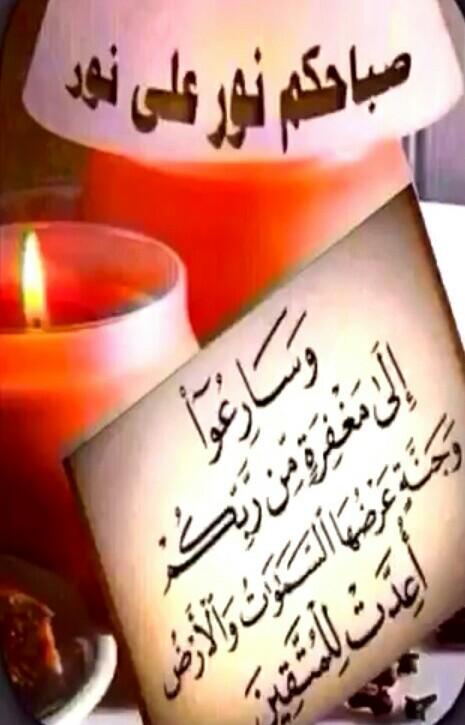 صباحكم نور على نور
وَسَارِعُوٓا۟
إِلَىٰ مَغْفِرَةٍ مِّن رَّبِّكُمْ
وَجَنَّةٍ عَرْضُهَا ٱلسَّمَٰوَٰتُ وَٱلْأَرْضُ
أُعِدَّتْ لِلْمُتَّقِينَ